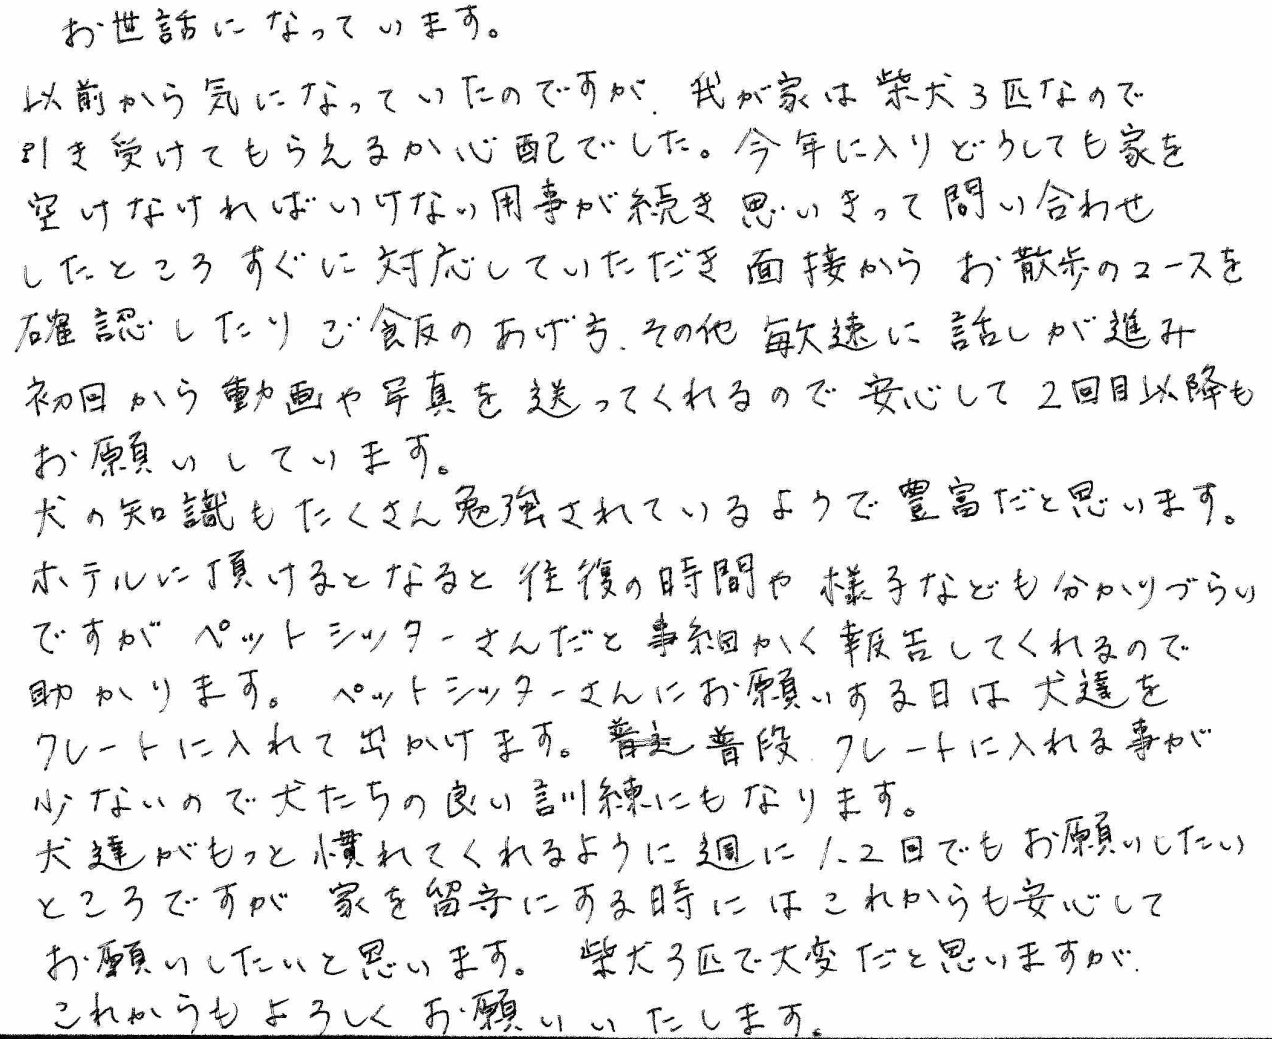 お世話になっています。
以前から気になっていたのですが、我が家は柴犬3匹なので
引き受けてもらえるか心配でした。今年に入りどうしても家を
空けなければいけない用事が続き思いきって問い合わせ
したところすぐに対応していただき面接からお散歩のコースを
確認したりご飯のあげ方、その他敏速に話しが進み
初回から動画や写真を送ってくれるので安心して2回目以降も
お願いしています。
犬の知識もたくさん勉強されているようで豊富だと思います。
ホテルに頂けるとなると往復の時間や様子なども分かりづらい
ですがペットシッターさんだと事細かく報告してくれるので
助かります。ペットシッターさんにお願いする日は犬達を
クレートに入れて出かけます。普段、クレートに入れる事が
少ないので犬たちの良い訓練にもなります。
犬達がもっと慣れてくれるように週に1、2回でもお願いしたい
ところですが家を留守にする時にはこれからも安心して
お願いしたいと思います。柴犬3匹で大変だと思いますが、
これからもよろしくお願いいたします。